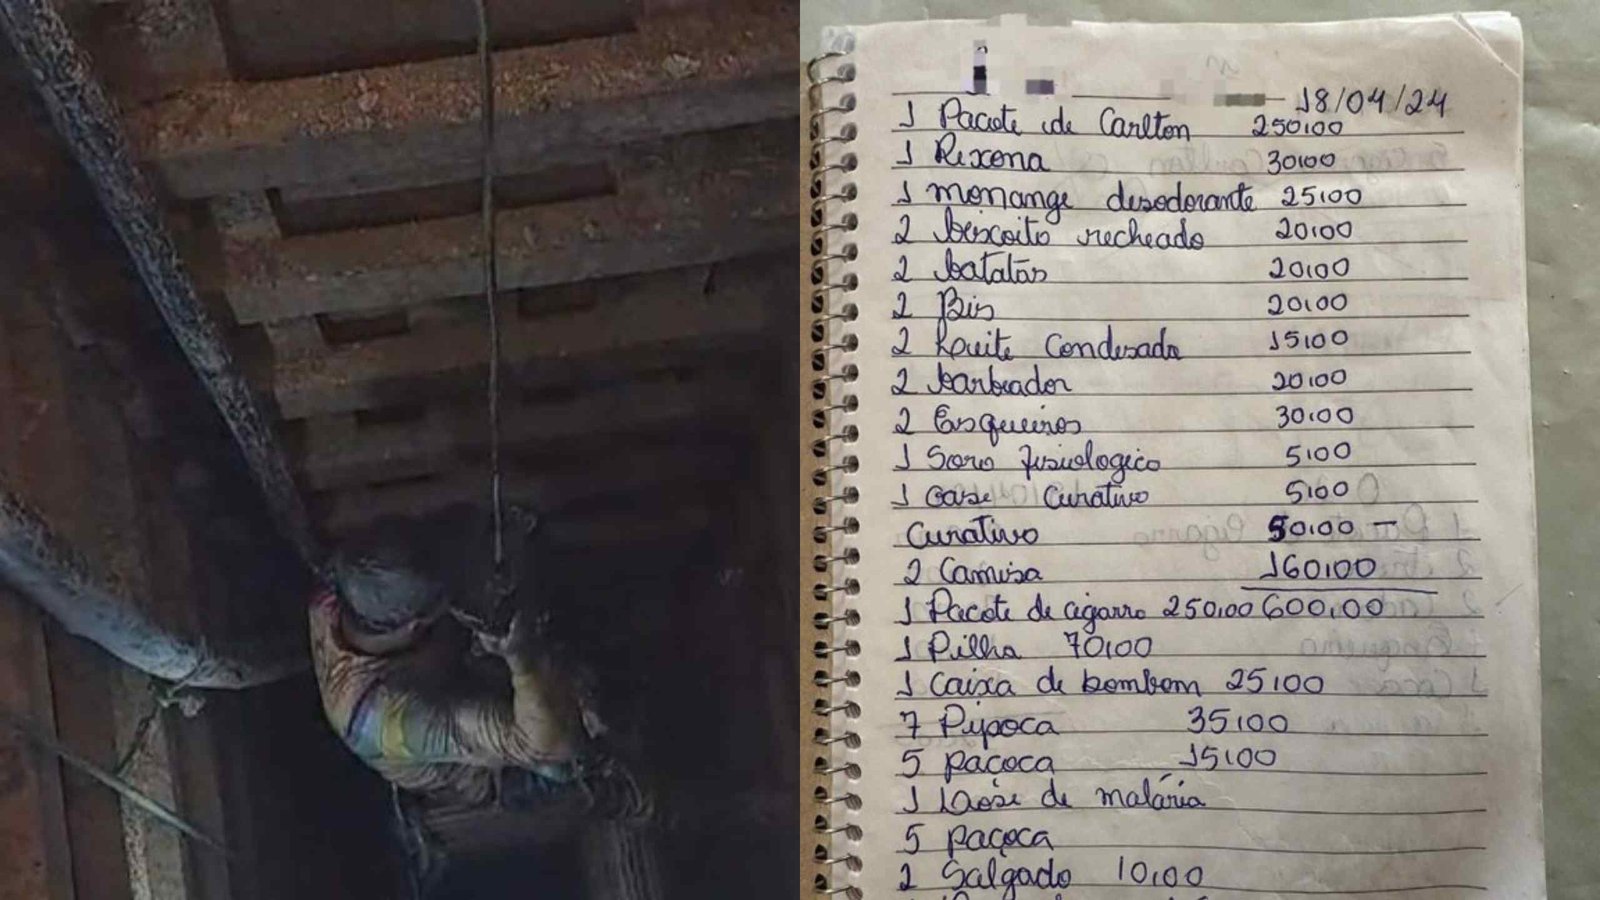 18/04/24
1 Pacote de Carlton 250,00
1 Rexona 30,00
1 monange desodorante 25,00
2 biscoito recheado 20,00
2 batatas 20,00
2 Bis 20,00
2 Leite Condesado 15,00
2 barbeador 20,00
2 Esqueiros 30,00
1 Soro fisiologico 5,00
1 Gase Curativo 5,00
Curativo 50,00 -
2 Camisa 160,00
1 Pacote de cigarro 250,00 600,00
1 Pilha 70,00
1 Caixa de bombom 25,00
7 Pipoca 35,00
5 paçoca 15,00
1 Dose de malária
5 paçoca
2 Salgado 10,00